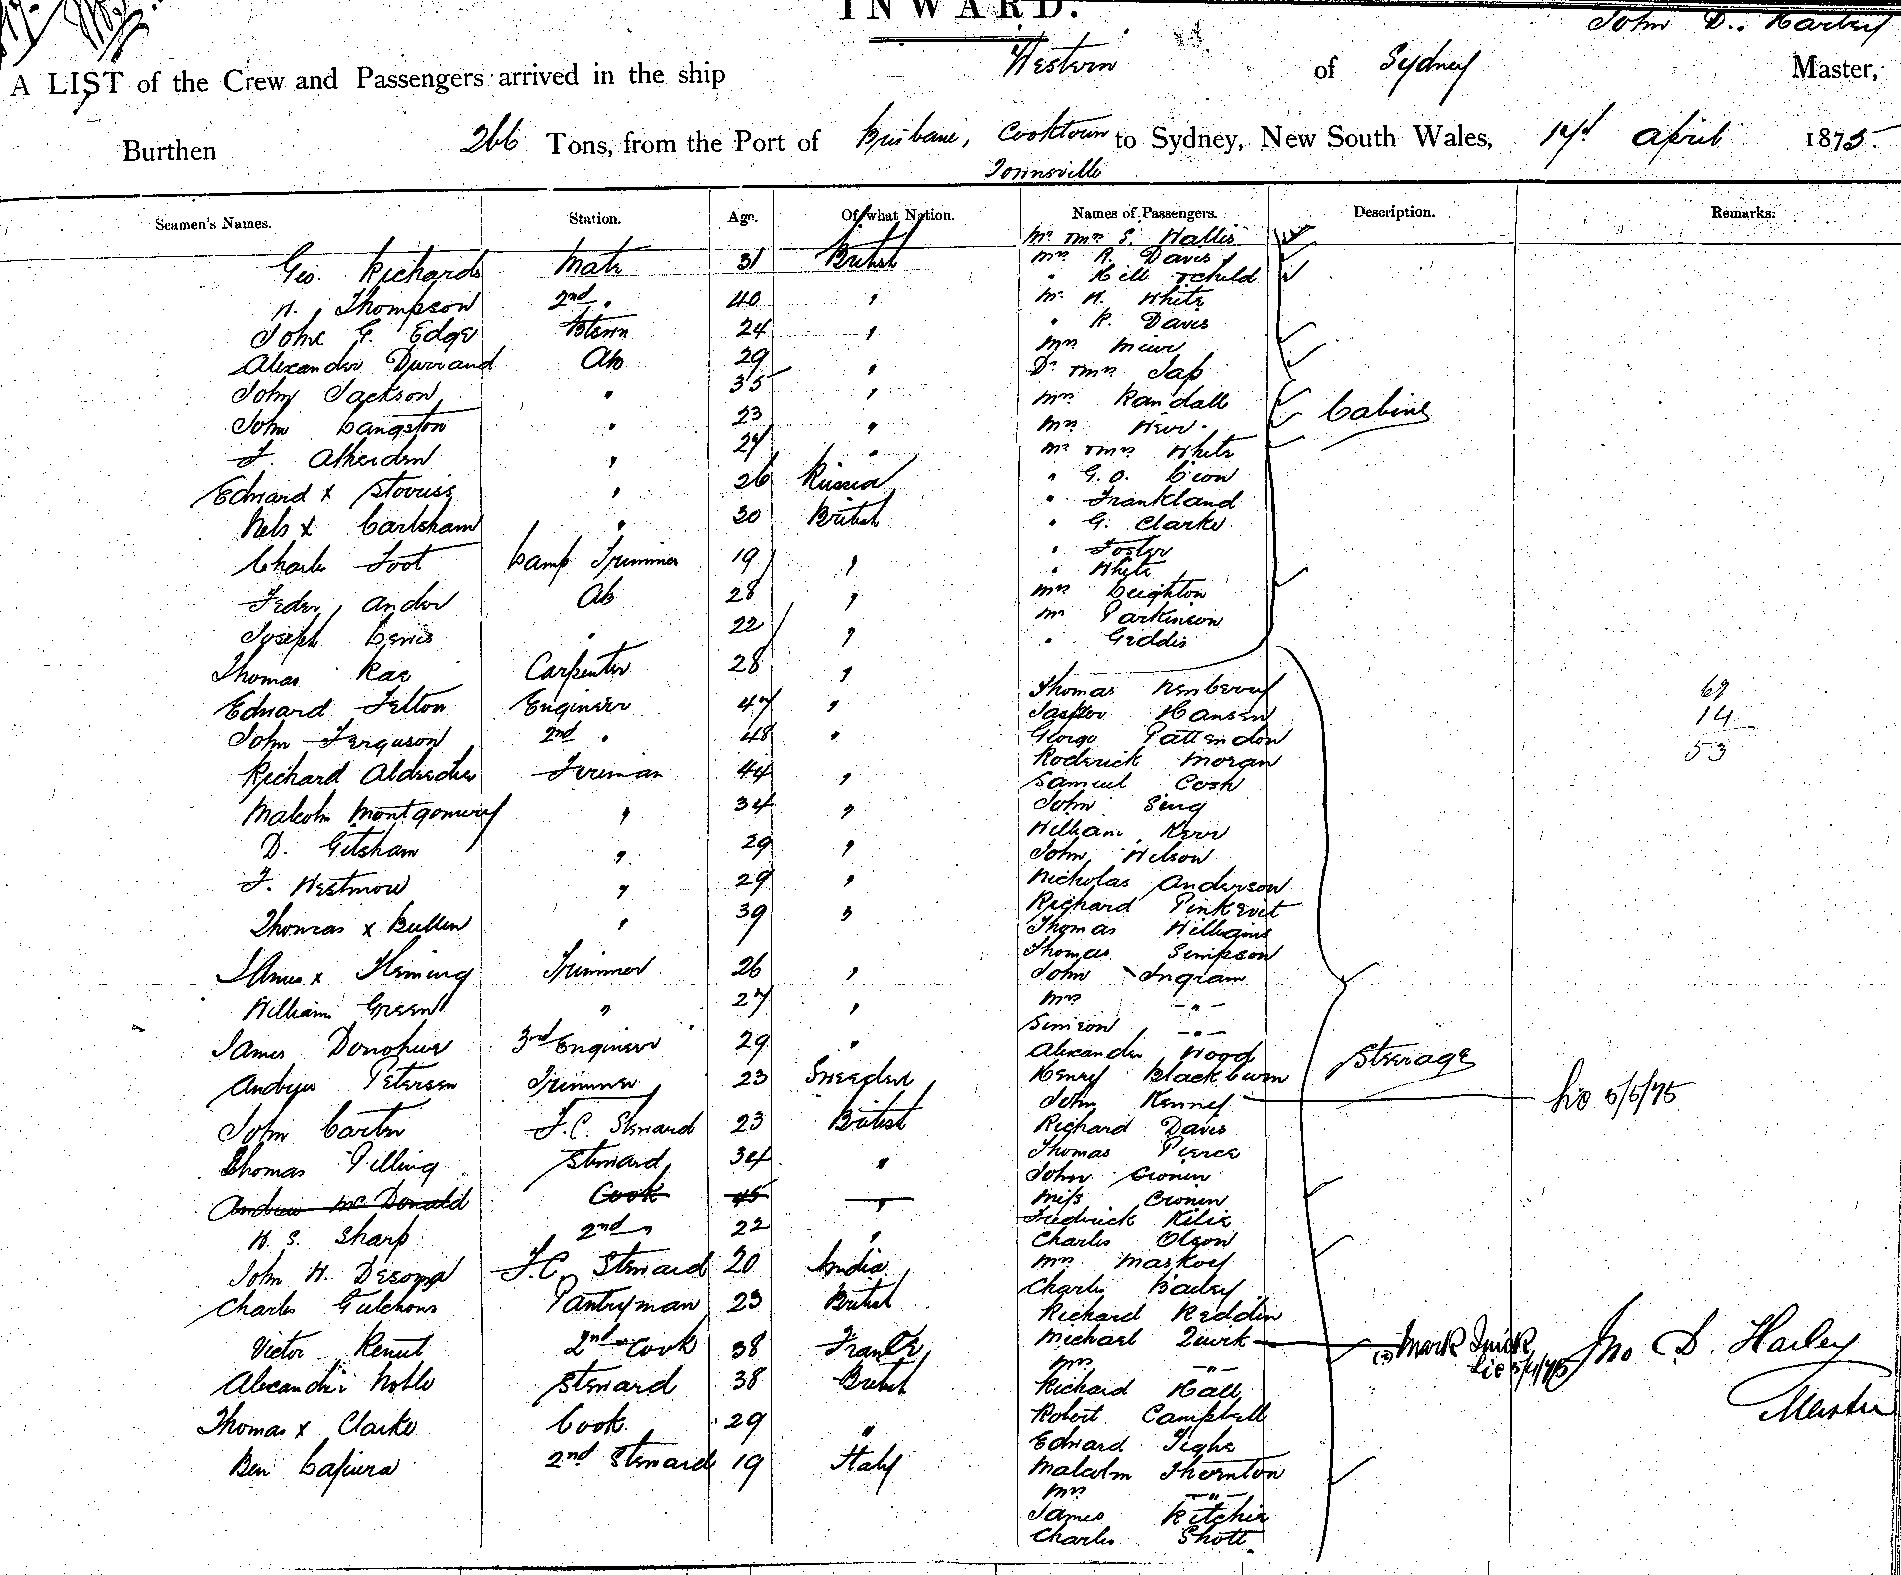 INWARD.
John D. Harley
A LIST of the Crew and Passengers arrived in the ship Western of Sydney Master,
Burthen 266 Tons, from the Port of Brisbane, Cooktown to Sydney, New South Wales, April 1875
Townsville
Seamen's Names. Station. Age. Of what Nation. Names of Passengers. Description. Remarks.
Geo. Richards Mate 31 British
H. Thompson 2nd " 40 "
John G. Edge Bteswn 24 "
Alexander Durrand AB 29 "
John Jackson " 35 "
John Langston " 23 "
" 27 "
Edward x " 26 Russia
Nels x Carlsham " 30 British
Charles Foot Lamp Trimmer 19 "
Ander AB 28 "
Joseph Lewis " 22 "
Thomas Rae Carpenter 28 "
Edward Felton Engineer 47 "
John Ferguson 2nd " 48 "
Richard Fireman 44 "
Malcolm Montgomery " 34 "
D. Gitsham " 29 "
F. Westmore " 29 "
Thomas x Bullen " 39 "
James x Fleming Trimmer 26 "
William Green " 27 "
James Donohue 3rd Engineer 29 "
Andrew Petersen Trimmer 23 Sweeden
John Carter F.C. Steward 23 British
Thomas Pilling Steward 34 "
Andrew McDonald Cook 45 "
H. S. Sharp 2nd " 22 "
John H. Desoma F.C. Steward 20 India
Charles Pantryman 23 British
Victor Renut 2nd Cook 38 France
Alexander Noble Steward 38 British
Thomas x Clarke Cook 29 "
Ben 2nd Steward 19 Italy
Mr & Mrs S. Wallis
Mrs R. Davis
" Hill & child
Mr H. White
" R. Davis
Mrs
Dr & Mrs
Mrs Randall
Mrs
Mr & Mrs White
" G. O.
" Frankland
" G. Clarke
" Foster
" White
Mrs Leighton
Mr Parkinson
" Geddis
Cabins
Thomas Newberry
Jasper Hansen
George Pattendon
Roderick Moran
Samuel Cosh
John Sing
William Kerr
John Wilson
Nicholas Anderson
Richard
Thomas Williams
Thomas Simpson
John Ingram
Mrs "
Simeon "
Alexander Wood
Henry Blackburn
John Kenney
Richard Davis
Thomas Pierce
John Cronin
Miss Cronin
Fredrick
Charles Olson
Mrs
Charles Bailey
Richard Reddin
Michael Quirk
Mrs "
Richard Hall
Robert Campbell
Edward Tighe
Malcolm Thornton
Mrs "
James Ritchie
Charles Shott.
Steerage
69
14
53
5/5/75
Mark Quirk
Jno D. Harley
Master